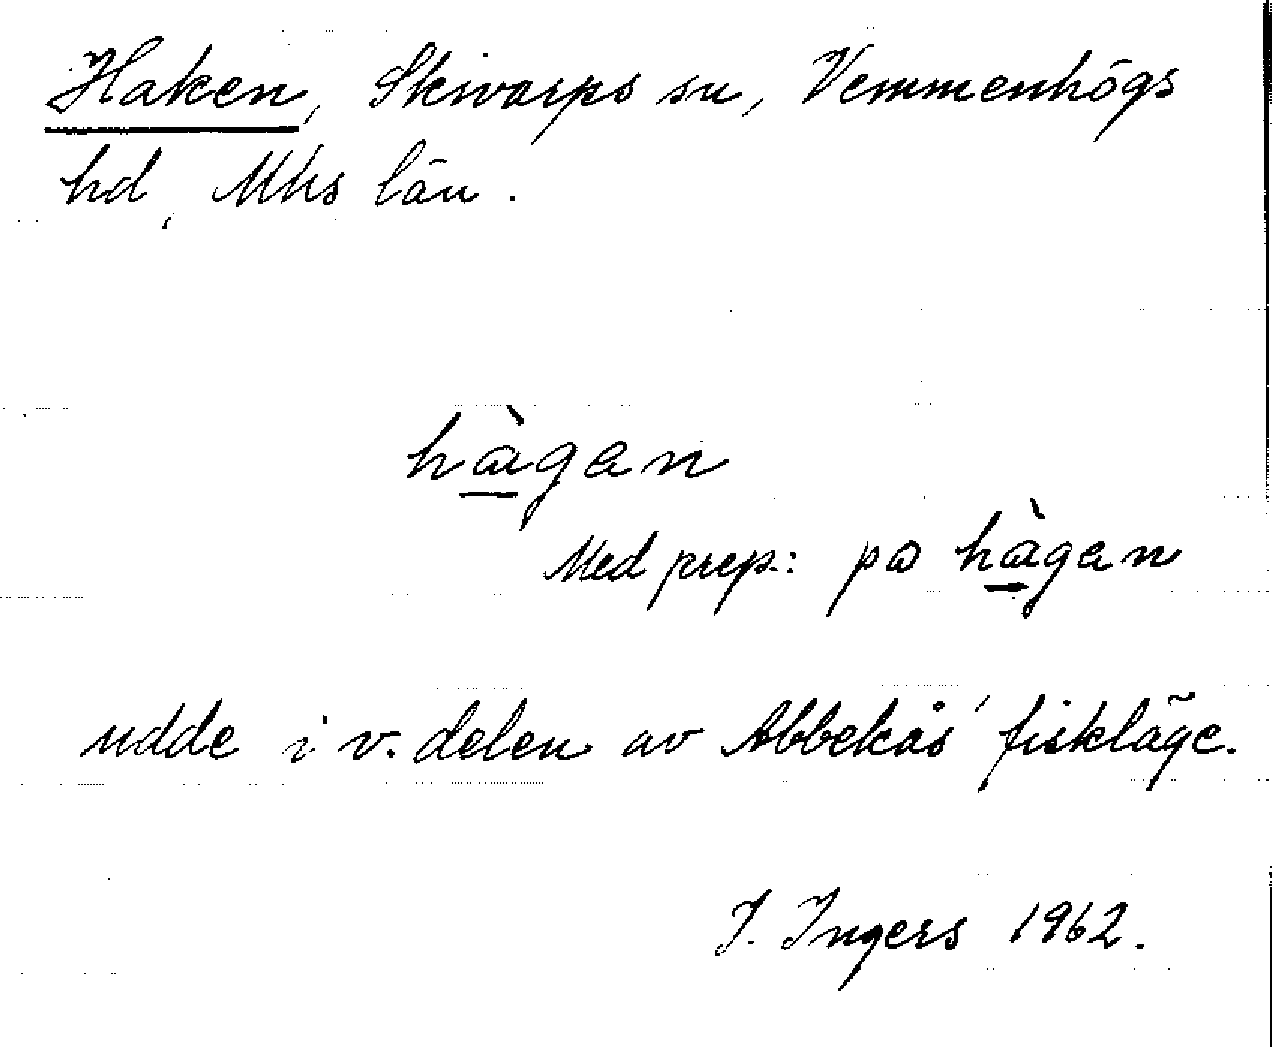 Haken, Skivarps sn, Vemmenhögs
hd, Mhs län.
hàgan
Med prep.: pa hàgan
udde i v. delen av Abbekås' fiskläge.
I. Ingers 1962.